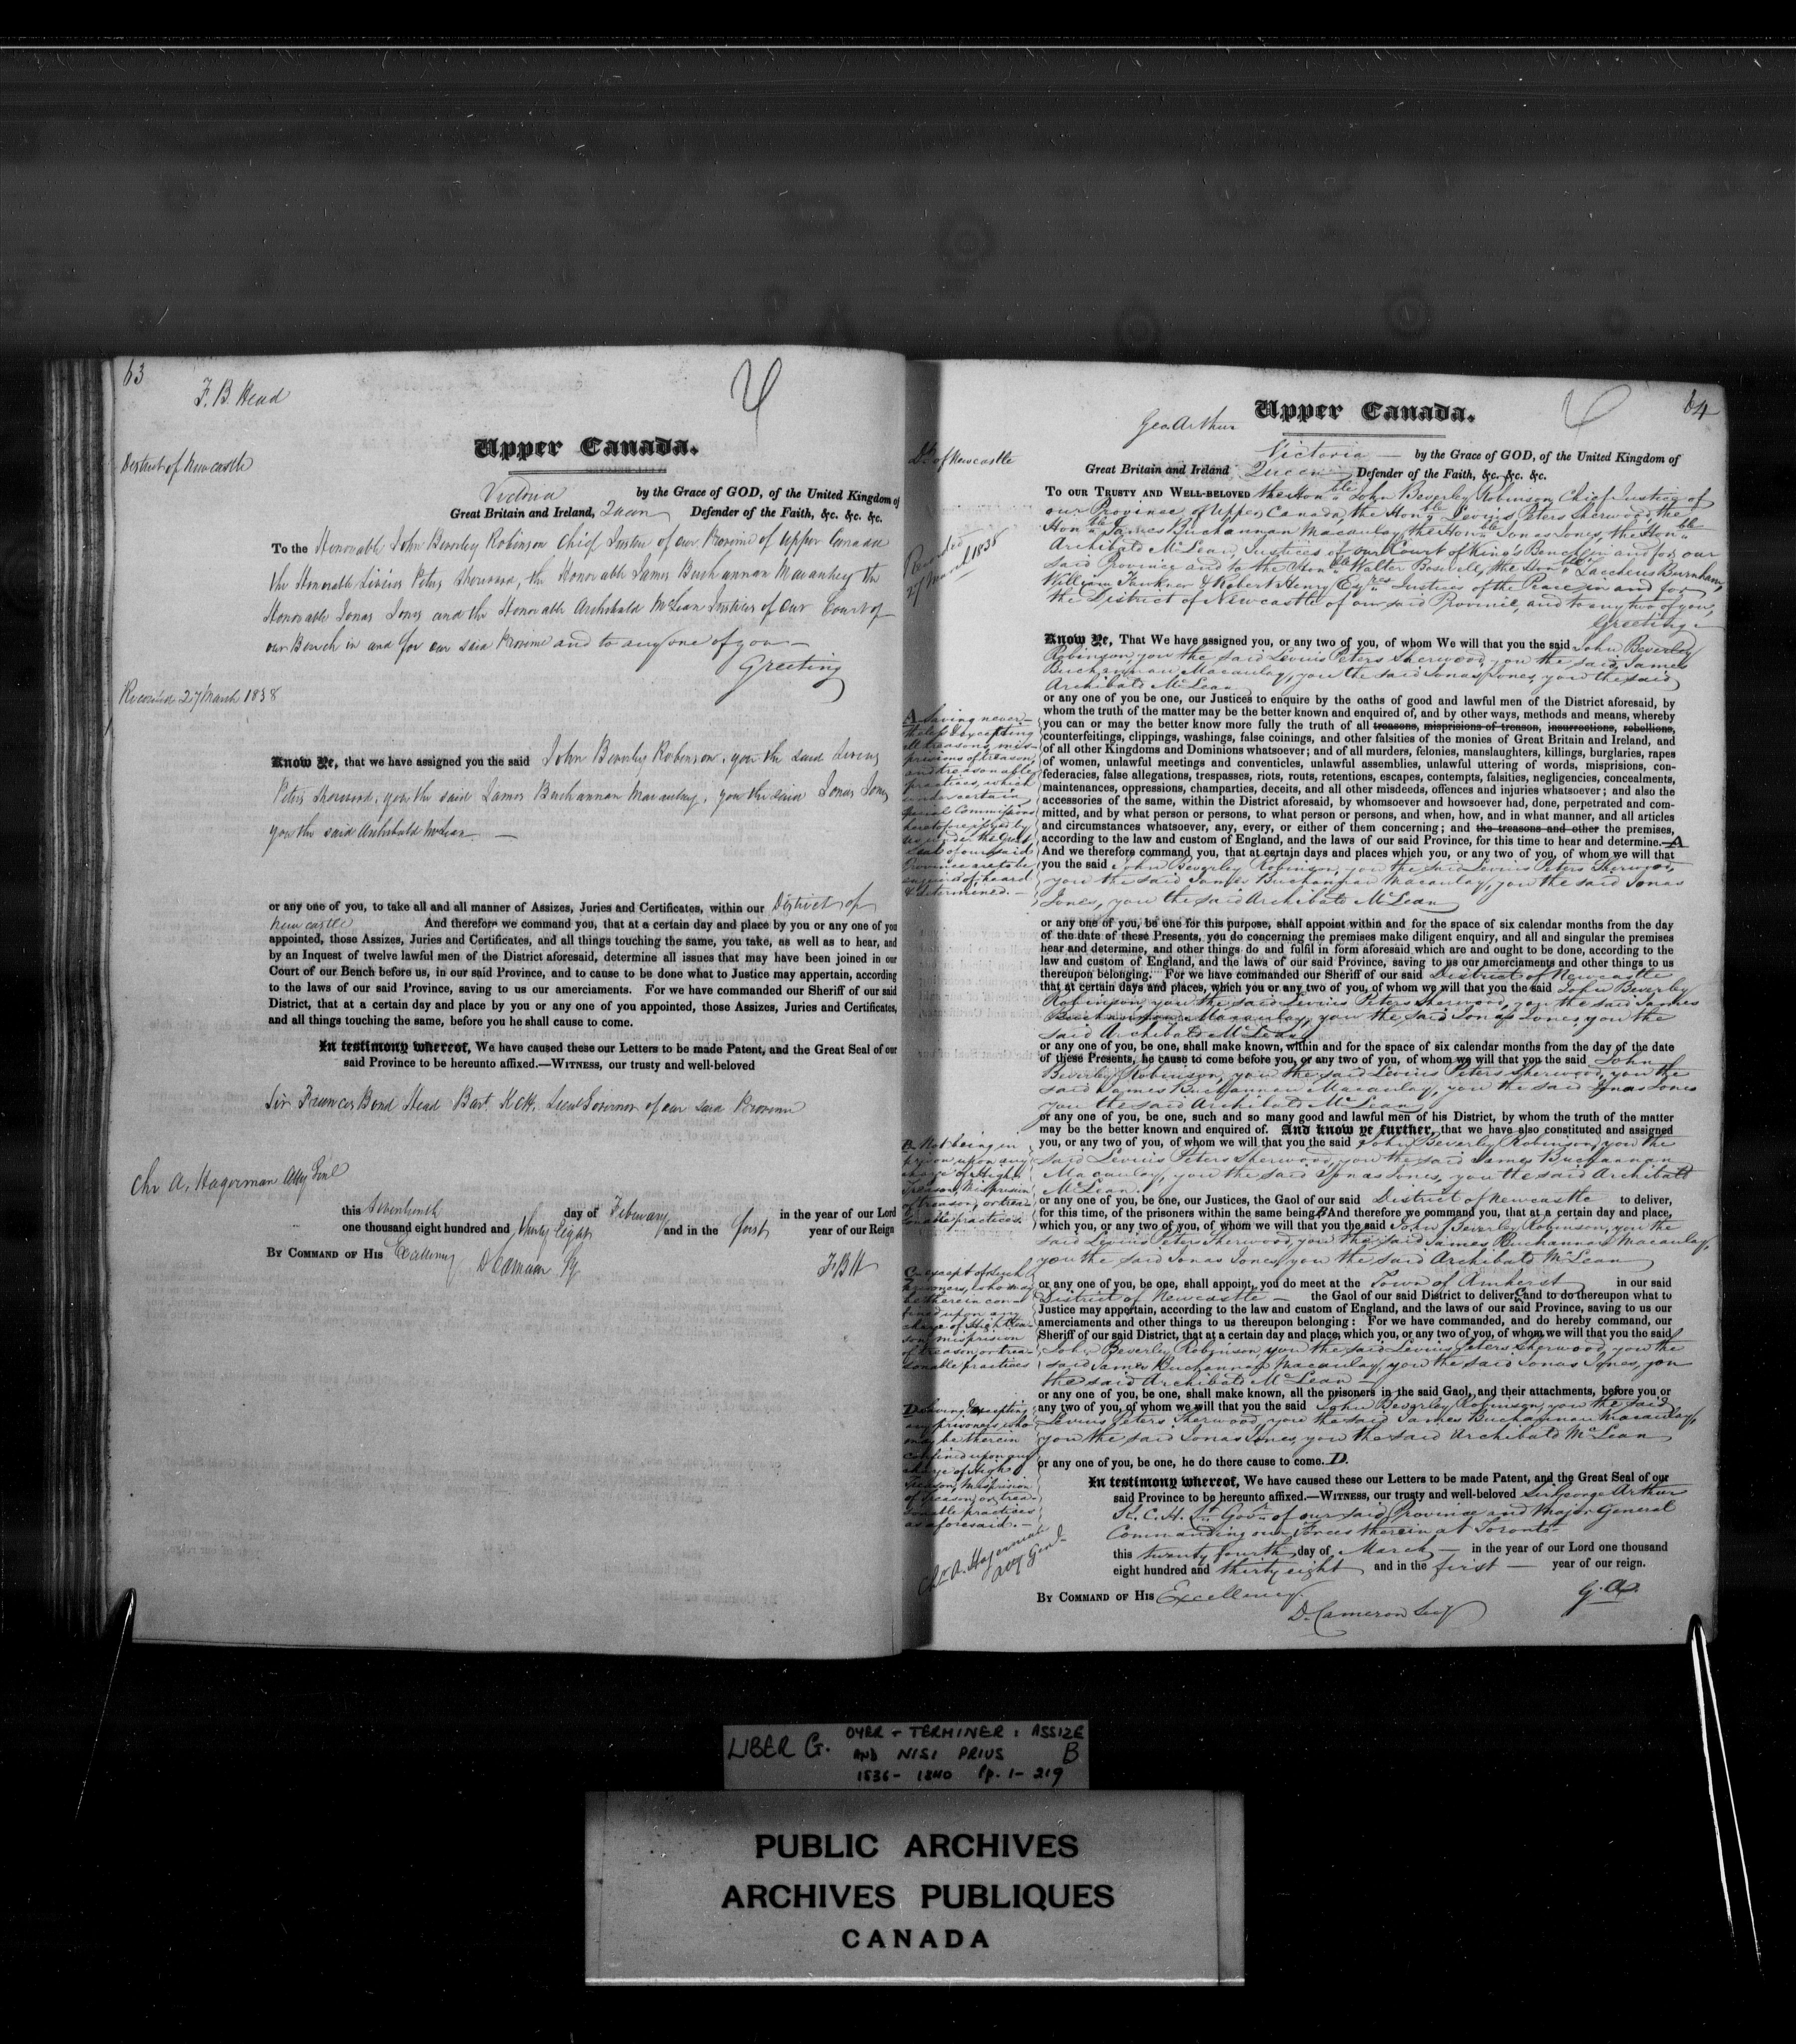 63
F. B. Head
Upper Canada.
District of Newcastle
Victoria by the Grace of GOD, of the United Kingdom of
Great Britain and Ireland, Queen Defender of the Faith, &c. &c. &c.
To the Honorable John Beverley Robinson Chief Justice of our Province of Upper Canada
the Honorable Livius Peters Sherwood, the Honorable James Buchannan Macauley the
Honorable Jonas Jones and the Honorable Archibald McLean Justices of our Court of
our Bench in and for our said Province and to any one of you —
Greeting
Recorded 27 March 1838
Know Ye, that we have assigned you the said John Beverley Robinson, you the said Livius
Peters Sherwood, you the said James Buchannan Macauley, you the said Jonas Jones
you the said Archibald McLean —
or any one of you, to take all and all manner of Assizes, Juries and Certificates, within our District of
Newcastle And therefore we command you, that at a certain day and place by you or any one of you
appointed, those Assizes, Juries and Certificates, and all things touching the same, you take, as well as to hear, and
by an Inquest of twelve lawful men of the District aforesaid, determine all issues that may have been joined in our
Court of our Bench before us, in our said Province, and to cause to be done what to Justice may appertain, according
to the laws of our said Province, saving to us our amerciaments. For we have commanded our Sheriff of our said
District, that at a certain day and place by you or any one of you appointed, those Assizes, Juries and Certificates,
and all things touching the same, before you he shall cause to come.
In testimony whereof, We have caused these our Letters to be made Patent, and the Great Seal of our
said Province to be hereunto affixed.—WITNESS, our trusty and well-beloved
Sir Francis Bond Head Bart. K.C.H. Lieut Governor of our said Province
Chr A. Hagerman Atty Genl
this Seventeenth day of February in the year of our Lord
one thousand eight hundred and thirty eight and in the first year of our Reign
BY COMMAND OF HIS Excellency
D Cameron Sy
F B H
64
Upper Canada.
Geo. Arthur
Dt. of Newcastle
Victoria — by the Grace of GOD, of the United Kingdom of
Great Britain and Ireland Queen Defender of the Faith, &c. &c. &c.
TO OUR TRUSTY AND WELL-BELOVED the Honble. John Beverley Robinson, Chief Justice of
our Province of Upper Canada, the Honble. Levius Peters Sherwood, the
Honble. James Buchannan Macaulay, the Honble. Jonas Jones, the Honble.
Archibald McLean, Justices of our Court of King's Bench in and for our
said Province and to the Honble. Walter Boswell, the Honble. Zaccheus Burnham,
William Faukner & Robert Henry Esqres. Justices of the Peace in and for
the District of Newcastle of our said Province, and to any two of you,
Greeting
Recorded
27 March 1838
Know Ye, That We have assigned you, or any two of you, of whom We will that you the said John Beverley
Robinson, you the said Levius Peters Sherwood, you the said James
Buchannan Macaulay, you the said Jonas Jones, you the said
Archibald McLean
or any one of you be one, our Justices to enquire by the oaths of good and lawful men of the District aforesaid, by
whom the truth of the matter may be the better known and enquired of, and by other ways, methods and means, whereby
you can or may the better know more fully the truth of all treasons, misprisions of treason, insurrections, rebellions,
counterfeitings, clippings, washings, false coinings, and other falsities of the monies of Great Britain and Ireland, and
of all other Kingdoms and Dominions whatsoever; and of all murders, felonies, manslaughters, killings, burglaries, rapes
of women, unlawful meetings and conventicles, unlawful assemblies, unlawful uttering of words, misprisions, con-
federacies, false allegations, trespasses, riots, routs, retentions, escapes, contempts, falsities, negligencies, concealments,
maintenances, oppressions, champarties, deceits, and all other misdeeds, offences and injuries whatsoever; and also the
accessories of the same, within the District aforesaid, by whomsoever and howsoever had, done, perpetrated and com-
mitted, and by what person or persons, to what person or persons, and when, how, and in what manner, and all articles
and circumstances whatsoever, any, every, or either of them concerning; and the treasons and other the premises,
according to the law and custom of England, and the laws of our said Province, for this time to hear and determine. A
And we therefore command you, that at certain days and places which you, or any two of you, of whom we will that
you the said John Beverley Robinson, you the said Levius Peters Sherwood,
you the said James Buchannan Macaulay, you the said Jonas
Jones, you the said Archibald McLean
A Saving never-
theless & excepting
all treasons, mis-
prisions of treason,
and treasonable
practices, which
under certain
special Commissions
heretofore issued by
us under the Great
Seal of our said
Province are to be
enquired of, heard
& determined. —
or any one of you, be one for this purpose, shall appoint within and for the space of six calendar months from the day
of the date of these Presents, you do concerning the premises make diligent enquiry, and all and singular the premises
hear and determine, and other things do and fulfil in form aforesaid which are and ought to be done, according to the
law and custom of England, and the laws of our said Province, saving to us our amerciaments and other things to us
thereupon belonging. For we have commanded our Sheriff of our said District of Newcastle
that at certain days and places, which you or any two of you, of whom we will that you the said John Beverley
Robinson, you the said Levius Peters Sherwood, you the said James
Buchannan Macaulay, you the said Jonas Jones, you the
said Archibald McLean
or any one of you, be one, shall make known, within and for the space of six calendar months from the day of the date
of these Presents, he cause to come before you, or any two of you, of whom we will that you the said John
Beverley Robinson, you the said Levius Peters Sherwood, you the
said James Buchannan Macaulay, you the said Jonas Jones
you the said Archibald McLean
or any one of you, be one, such and so many good and lawful men of his District, by whom the truth of the matter
may be the better known and enquired of. And know ye further, that we have also constituted and assigned
you, or any two of you, of whom we will that you the said John Beverley Robinson, you the
said Levius Peters Sherwood, you the said James Buchannan
Macaulay, you the said Jonas Jones, you the said Archibald
McLean
or any one of you, be one, our Justices, the Gaol of our said District of Newcastle to deliver,
for this time, of the prisoners within the same being B And therefore we command you, that at a certain day and place,
which you, or any two of you, of whom we will that you the said John Beverley Robinson, you the
said Levius Peters Sherwood, you the said James Buchannan Macaulay,
you the said Jonas Jones, you the said Archibald McLean
B Not being in
prison, upon any
charge of High
Treason, Misprision
of treason, or trea-
sonable practices.
or any one of you, be one, shall appoint, you do meet at the Town of Amherst in our said
District of Newcastle — the Gaol of our said District to deliver, C and to do thereupon what to
Justice may appertain, according to the law and custom of England, and the laws of our said Province, saving to us our
amerciaments and other things to us thereupon belonging: For we have commanded, and do hereby command, our
Sheriff of our said District, that at a certain day and place, which you, or any two of you, of whom we will that you the said
John Beverley Robinson, you the said Levius Peters Sherwood, you the
said James Buchannan Macaulay, you the said Jonas Jones, you
the said Archibald McLean —
C except of such
prisoners, who may
be therein con-
fined upon any
charge of High trea-
son, misprision
of treason, or trea-
sonable practices
or any one of you, be one, shall make known, all the prisoners in the said Gaol, and their attachments, before you or
any two of you, of whom we will that you the said John Beverley Robinson, you the said
Levius Peters Sherwood, you the said James Buchannan Macaulay,
you the said Jonas Jones, you the said Archibald McLean
or any one of you, be one, he do there cause to come. D.
D Saving & excepting
any prisoners, who
may be therein
confined upon any
charge of High
Treason, Misprision
of treason, or trea-
sonable practices
as aforesaid. —
Chr. A. Hagerman
Atty Genl.
In testimony whereof, We have caused these our Letters to be made Patent, and the Great Seal of our
said Province to be hereunto affixed.—WITNESS, our trusty and well-beloved Sir George Arthur
K. C. H. Lt. Govr. of our said Province and Major General
Commanding our Forces therein at Toronto
this twenty fourth day of March — in the year of our Lord one thousand
eight hundred and thirty eight and in the first — year of our reign.
BY COMMAND OF HIS Excellency
G. A.
D. Cameron Secy
LIBER G. OYER + TERMINER: ASSIZE
AND NISI PRIUS B
1836 - 1840 Pp. 1 - 219
PUBLIC ARCHIVES
ARCHIVES PUBLIQUES
CANADA